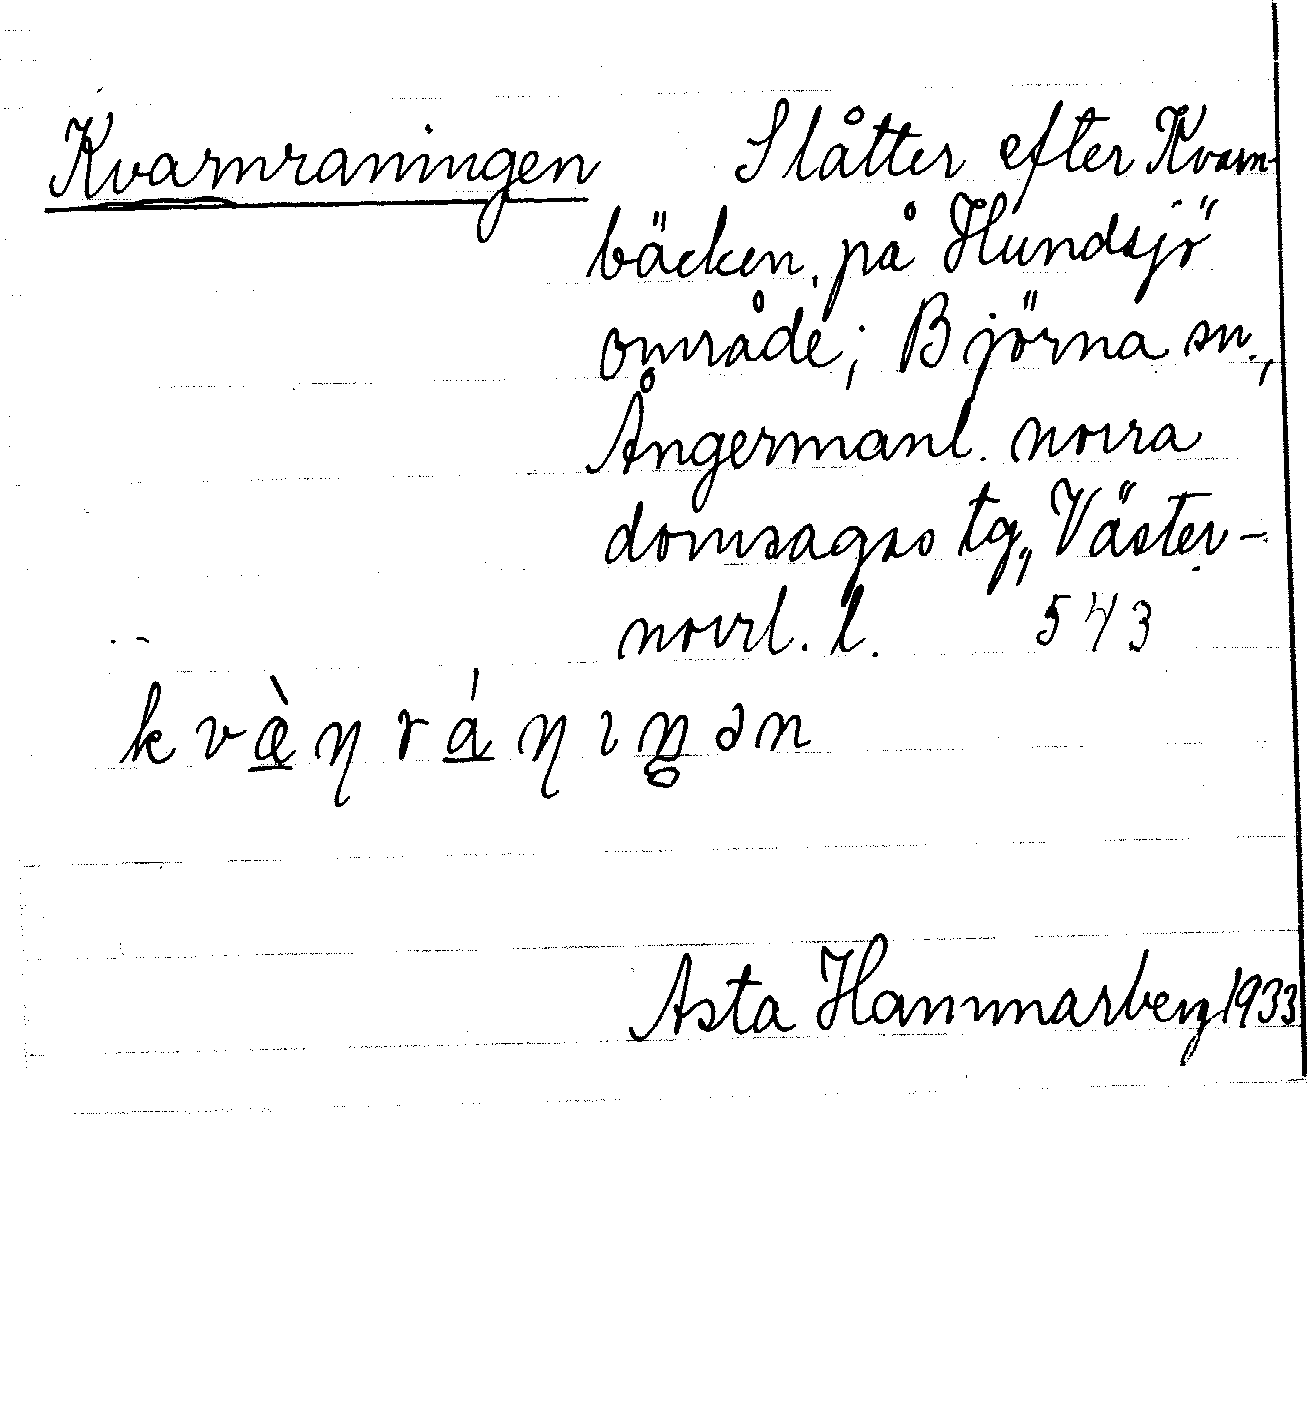 Kvarnraningen Slåtter efter Kvarn-
bäcken, på Hundsjö
område; Björna sn.,
Ångermanl. norra
domsagas tg, Väster-
norrl. l. 543
kvæ̀ŋráŋıŋən
Asta Hammarberg 1933